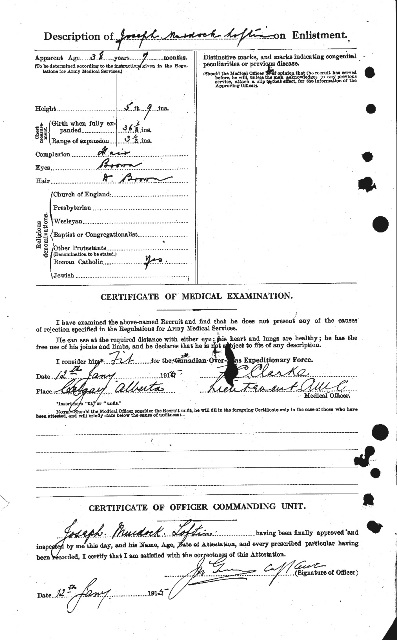 Description of Joseph Murdock Loftin on Enlistment.
Apparent Age 38 years 9 months.
(To be determined according to the instructions given in the Regulations for Army Medical Services.)
Distinctive marks, and marks indicating congenital peculiarities or previous disease.
(Should the Medical Officer be of opinion that the recruit has served before, he will, unless the man acknowledges to any previous service, attach a slip to that effect, for the information of the Approving Officer).
Height 5 ft. 9 ins.
Chest measurement
Girth when fully expanded ins.
Range of expansion ins.
Complexion Fair
Eyes Brown
Hair D Brown
Religious denominations
Church of England
Presbyterian
Wesleyan
Baptist or Congregationalist
Other Protestants
(Denomination to be stated.)
Roman Catholic Yes
Jewish
CERTIFICATE OF MEDICAL EXAMINATION.
I have examined the above-named Recruit and find that he does not present any of the causes
of rejection specified in the Regulations for Army Medical Services.
He can see at the required distance with either eye; his heart and lungs are healthy; he has the
free use of his joints and limbs, and he declares that he is not subject to fits of any description.
I consider him* Fit for the Canadian Over-Seas Expeditionary Force.
Date 12th Jany 1915 Clarke
Place Calgary Alberta Lieutenant AMC
Medical Officer.
*Insert here "fit" or "unfit."
NOTE.—Should the Medical Officer consider the Recruit unfit, he will fill in the foregoing Certificate only in the case of those who have
been attested, and will briefly state below the cause of unfitness:—
CERTIFICATE OF OFFICER COMMANDING UNIT.
Joseph Murdock Loftin having been finally approved and
inspected by me this day, and his Name, Age, Date of Attestation, and every prescribed particular having
been recorded, I certify that I am satisfied with the correctness of this Attestation.
(Signature of Officer)
Date 12th Jany 1915